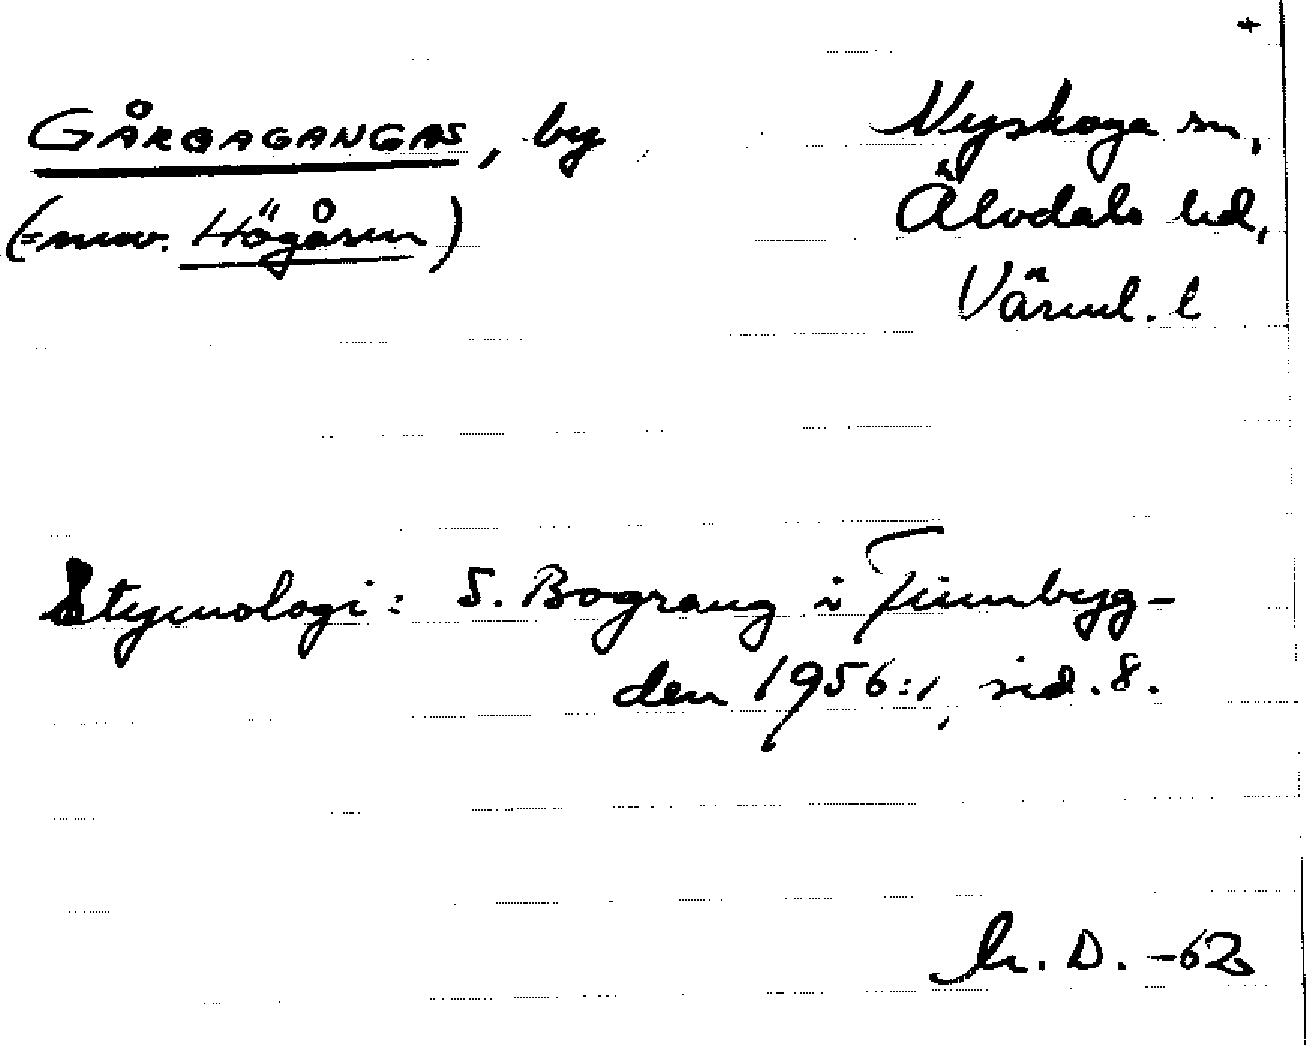 +
GÅRDAGANGAS, by
(= nuv. Högåsen)
Nyskoga sn,
Älvdals hd,
Värml. l
Etymologi: S. Bograng i Finnbyg-
den 1956:1, sid. 8.
D. -62